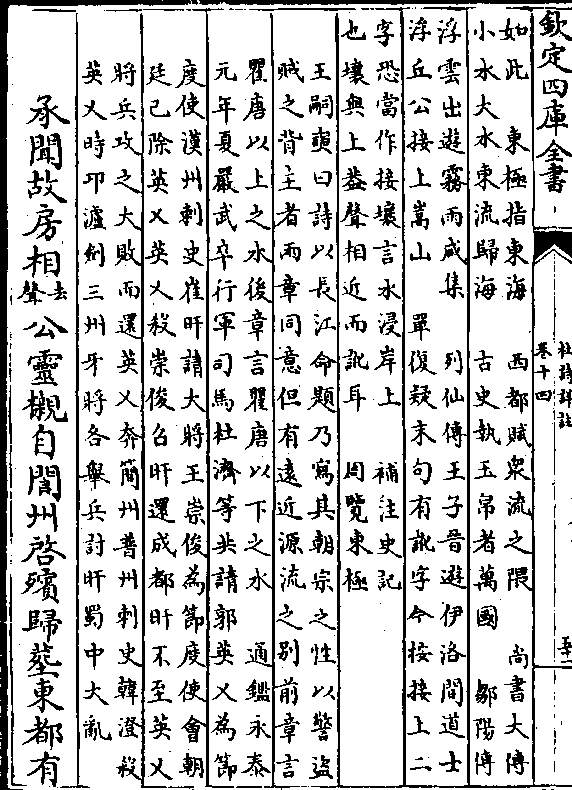 欽定四庫全書
杜詩詳註
卷十四
如此 東極指東海 西都賦衆流之隈 尚書大傳
小水大水東流歸海 古史執玉帛者萬國 鄒陽傳
浮雲出遊霧雨咸集 列仙傳王子晉遊伊洛間道士
浮丘公接上嵩山 單復疑末句有訛字今按接上二
字恐當作接壤言水浸岸上 補注史記
也壤與上葢聲相近而訛耳 周覽東極
王嗣奭曰詩以長江命題乃寫其朝宗之性以警盜
賊之背主者兩章同意但有遠近源流之别前章言
瞿唐以上之水後章言瞿唐以下之水 通鑑永泰
元年夏嚴武卒行軍司馬杜濟等共請郭英乂為節
度使漢州刺史崔旰請大將王崇俊為節度使會朝
廷已除英乂英乂殺崇俊召旰還成都旰不至英乂
將兵攻之大敗而還英乂奔簡州普州刺史韓澄殺
英乂時邛瀘劍三州牙將各舉兵討旰蜀中大亂
承聞故房相去聲公靈櫬自閬州啓殯歸塟東都有